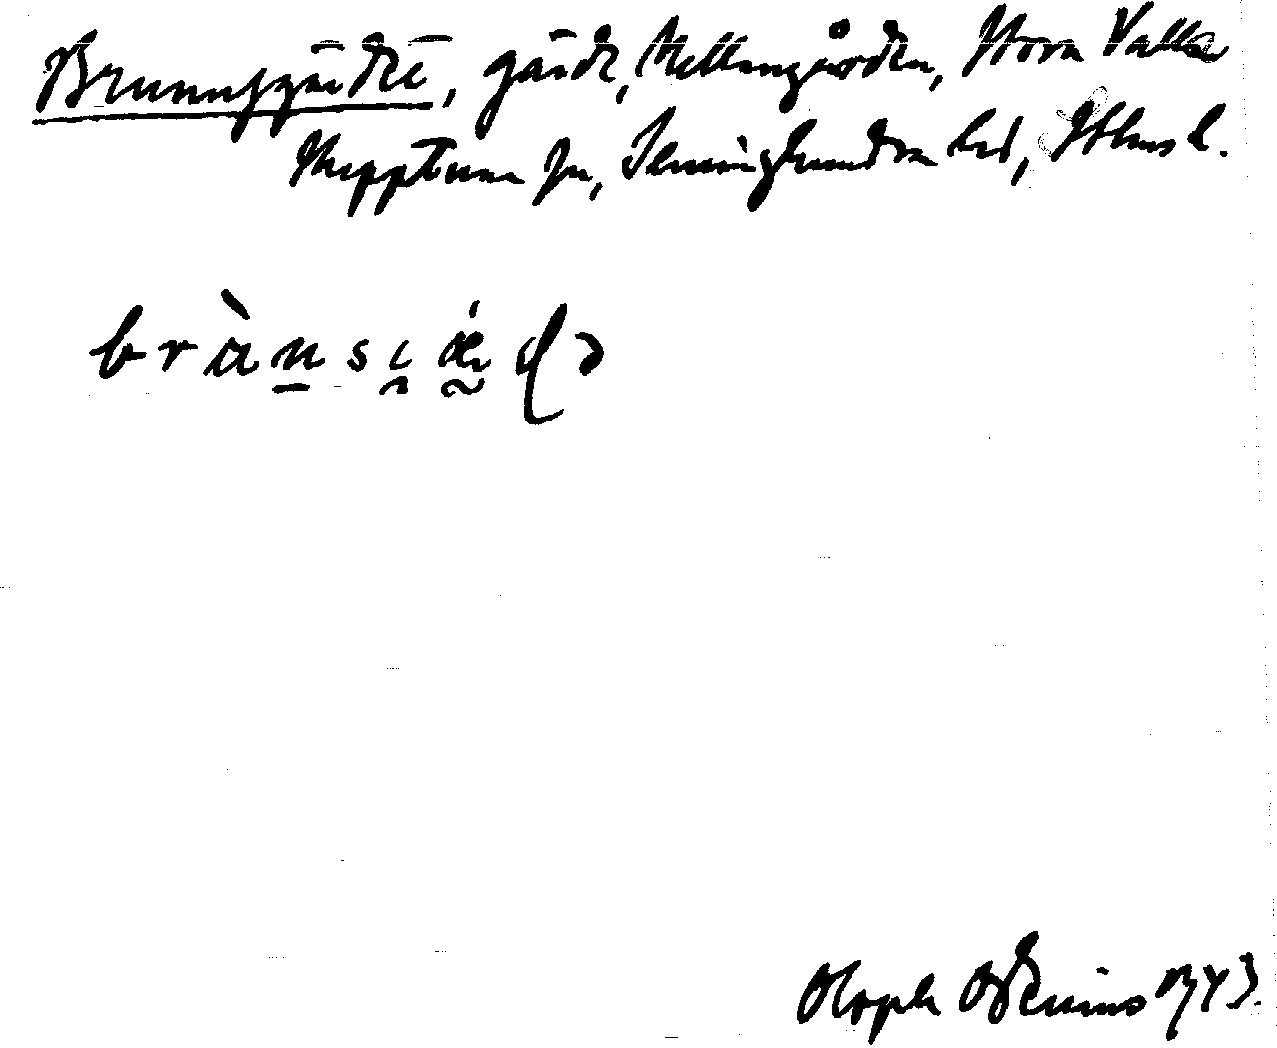 Brunnsgärde, gärde, Mellangården, Stora Valla
Skepptuna sn, Seminghundra hd, Sthms l.
brànsɩǽɖə
Oloph Odenius 1943.